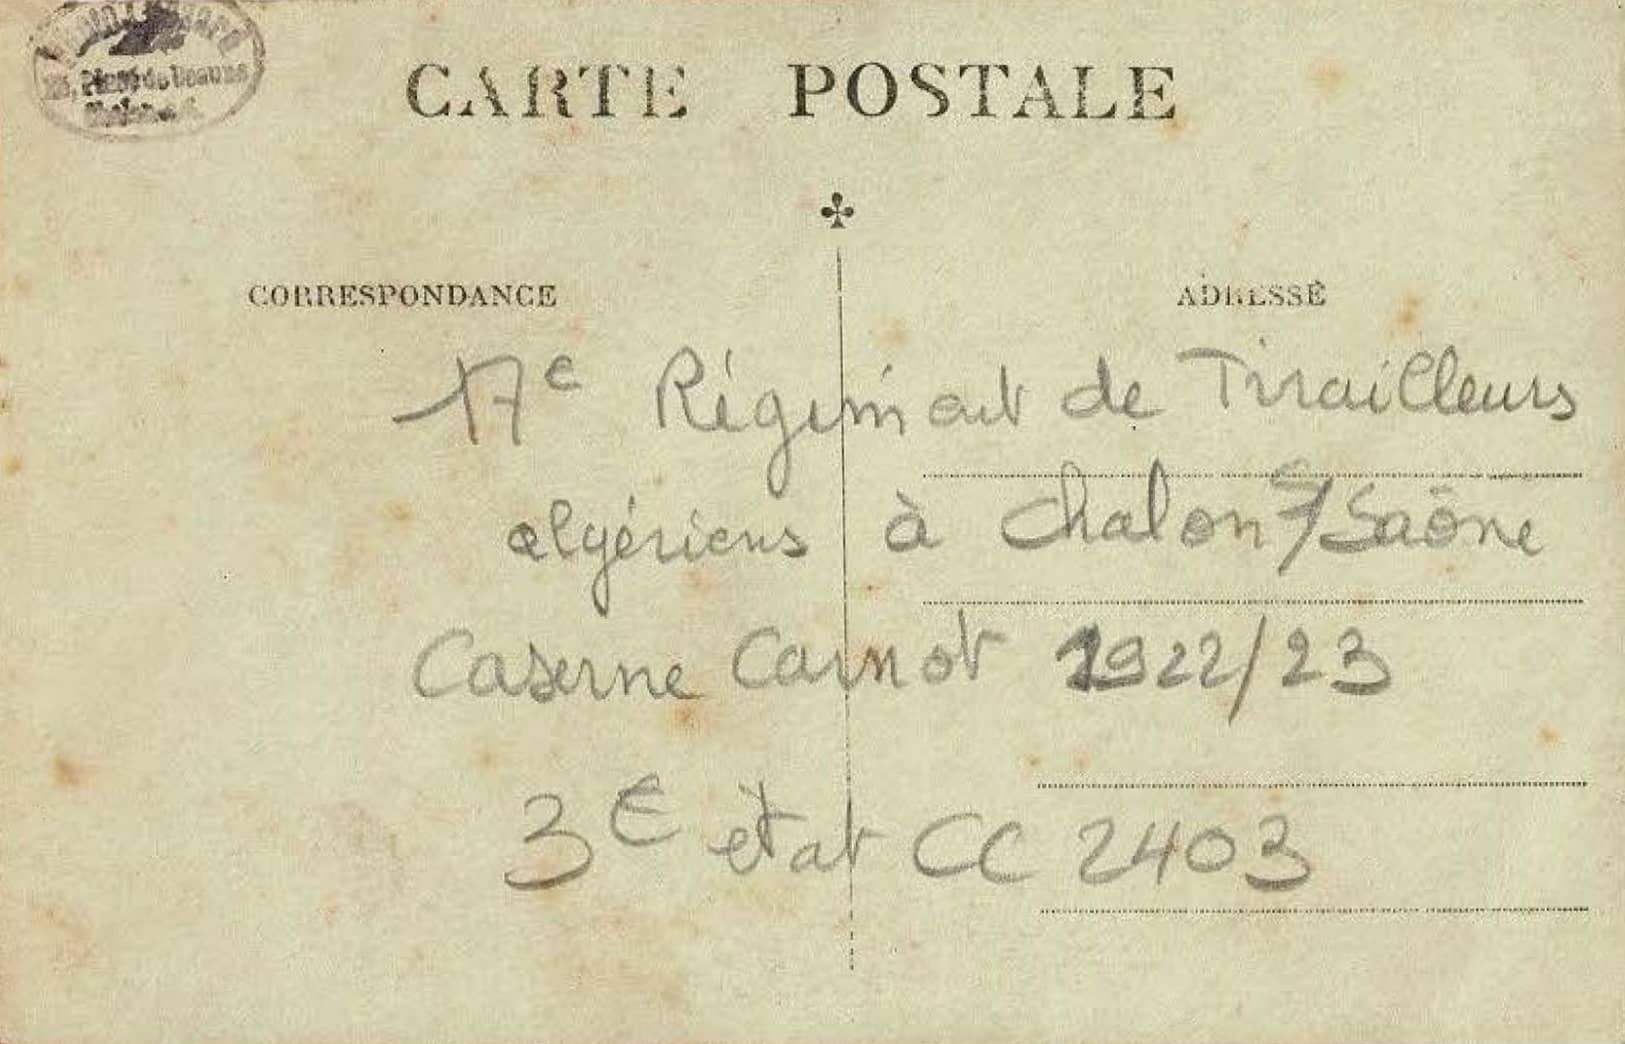 Place de Beaune
CARTE POSTALE
CORRESPONDANCE
ADRESSE
17e Régiment de Tirailleurs
algériens à Chalon s/Saône
Caserne Carnot 1922/23
3E état CC 2403